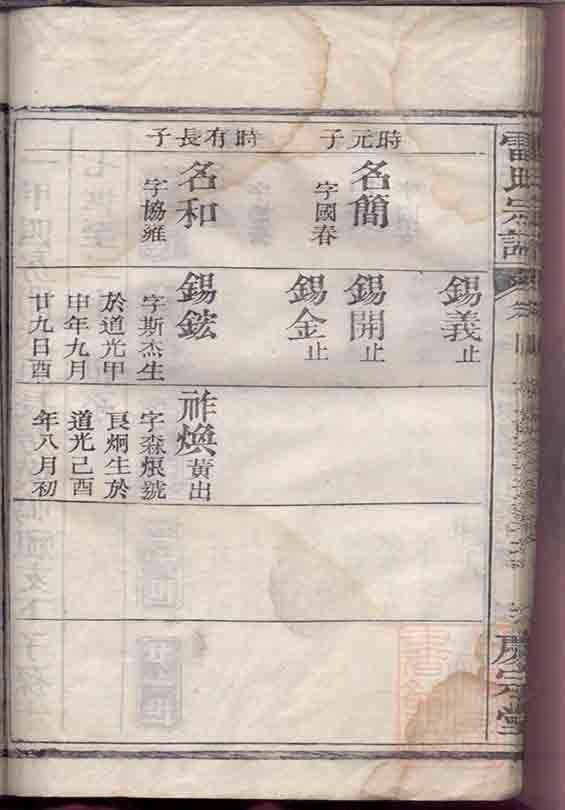 雷氏宗譜
時元子
名簡
字國春
時有長子
名和
字協雍
錫義止
錫開止
錫金止
錫鋐
字斯杰生
於道光甲
申年九月
廿九日酉
祚煥黃出
字森烺號
良炯生於
道光己酉
年八月初
宗堂